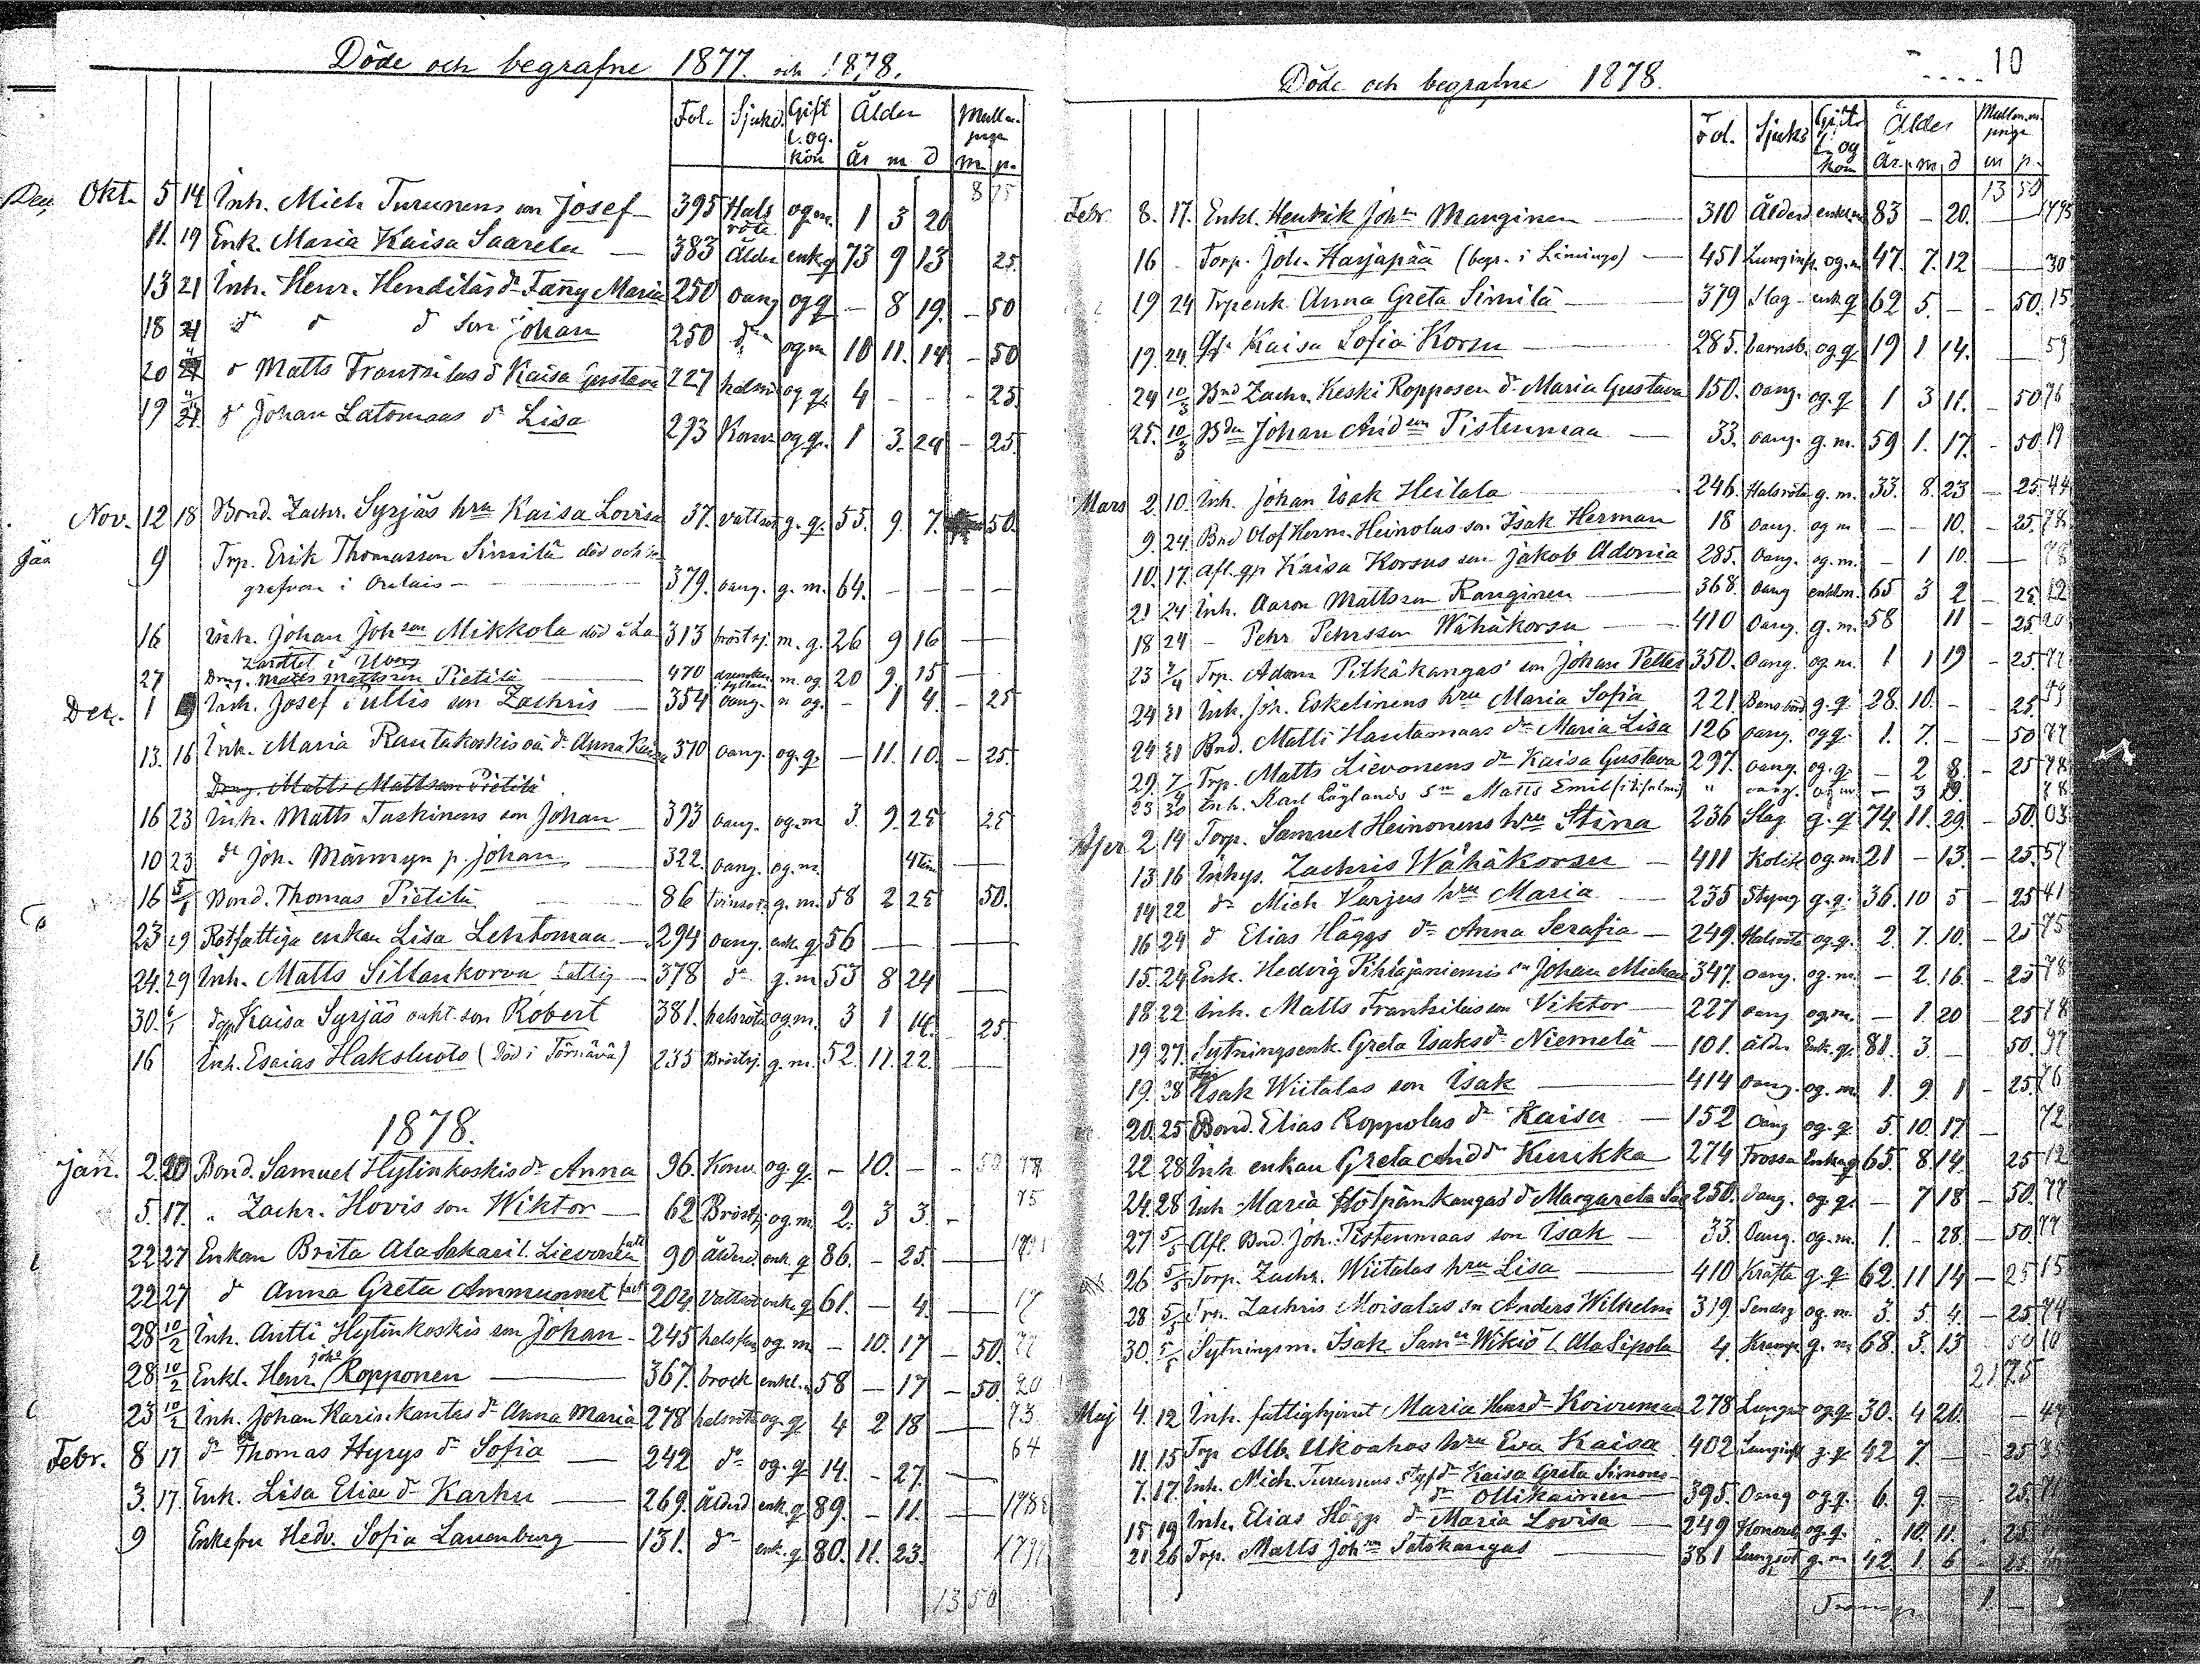 Döde och begrafne 1877. och 1878.
Fol. Sjukd. Gift l. og. kön Ålder År m d m p.
8 75
Okt. 5 14 Inh. Mich Turunens son Josef 395 Halsröta og m. 1 3 20
11. 19 Enk. Maria Kaisa Saarela 383 Ålder enk q 73 9 13 25.
13 21 Inh. Henr. Henditäs dr Fanny Maria 250 oang og q – 8 19. – 50
18 21 dn d d son Johan 250 dn og m 10 11. 14 – 50
20 d Matts Frantsilas d Kaisa Gustava 227 og q. 4 – – – 25.
19 d Johan Latomaas dr Lisa 293 og q. 1 3. 24 – 25.
Nov. 12 18 Bond. Zachr. Syrjäs hru Kaisa Lovisa 37. Vattsot g. q. 55. 9. 7. 50.
9 Trp. Erik Thomasson Simitä död och be
grafven i 379. oang. g. m. 64. – – – –
16 Inh. Johan Johson Mikkola död i La 313 bröstsj. m. g. 26 9 16 –
zarettet i Uleåg
27 Drng. Matts Mattsson Pietilä 470 m. og 20 9. 15 –
Dec. 1 9 Inh. Josef Pullis son Zachris 354 oang. m og. – 1 4. – 25
13. 16 Inh. Maria Rautakoskis oä dr Anna Kaisa 370 oang. og. q. – 11. 10. – 25.
Drng. Matts Mattsson Pietilä
16 23 Inh. Matts Taskinens son Johan 393 oang. og. m 3. 9. 25 25
10 23 dn Joh. Männyn p. Johan 322. oang. og. m. 4 tim
16 5/1 Bond. Thomas Pietilä 86 g. m. 58 2 25 50.
23 29 Rotfattiga enkan Lisa Lehtomaa 294 oang. enk. q 56 – – –
24. 29 Inh. Matts Siltankorva fattig 378 dn g. m 53 8 24 –
30. 6/1 Kaisa Syrjäs oäkt. son Robert 381. halsröta og m. 3 1 14. 25.
16 Inh. Esaias Haksluoto (Död i Törnävä) 235 Bröstsj. g. m. 52. 11. 22. –
1878.
Jan. 2. 20 Bond. Samuel Hytinkoskis dr Anna 96. Konv. og. q. – 10. – – 50 77
5. 17. " Zachr. Hovis son Wiktor 62 Bröstsj. og. m. 2. 3 3. – 75
22 27 Enkan Brita Alasakaril. Lievonen 90 Ålderd. enk. q 86. – 25. –
22 27 d Anna Greta Ammunnet 204 Vattsot enk. q 61. – 4. – 17
28 10/2 Inh. Antti Hytinkoskis son Johan 245 og. m – 10. 17 – 50. 77
28 10/2 Enkl. Henr. Johs Ropponen 367. brock enkl. m 58 – 17 – 50 20
23 10/2 Inh. Johan Karinkantas dr Anna Maria 278 halsröta og. q 4 2 18 – 73
Febr. 8 17 dn Thomas Hyrys dr Sofia 242 dn og. q 14. – 27. – 64
3. 17. Enk. Lisa Elias dr Karhu 269. Ålderd enk. q 89. – 11. – 1788
9 Enkefru Hedv. Sofia Lauenburg 131. dn enk. q 80. 11. 23.
13 50
Döde och begrafne 1878. 10
Fol. Sjukd Gift l. og kön Ålder År. m. d m p.
13 50
Febr. 8. 17. Enkl. Henrik Johsn Manginen 310 Ålderd enkl. m 83 – 20. – 1795
16 – Torp. Joh. Harjapää (begr. i Limingo) 451 Lunginfl. og. m 47. 7. 12 – 30
19 24 Trpenk. Anna Greta Simitä 379 Slag enk. q 62 5. – – 50. 15.
19. 24. Kaisa Sofia Korsu 285. barnsb. og. q 19 1 14. – 59
24 10/3 Bnd Zachr. Keski Ropposen dr Maria Gustava 150. oang. og. q 1 3 11. – 50 76
25. 10/3 Bdn Johan And son Pistenmaa 33. oang. g. m. 59 1. 17. – 50. 19
Mars 2. 10. Inh. Johan Isak Heitala 246. Halsröta g. m. 33. 8. 23 – 25 44
9. 24. Bnd Olof Herm. Heinolas son Isak Herman 18 oang. og m – – 10. – 25. 78
10. 17. afl. gp Kaisa Korsus son Jakob Adonia 285. oang. og. m. – 1 10. – 78
21 24 Inh. Aaron Mattsson Ranginen 368. oang enkl m. 65 3 2 – 25 12
18 24 – Pehr Pehrsson Wähäkorsu 410 oang. g. m. 58 11 – 25 20
23 7/4 Trp. Adam Pitkäkangas' son Johan Petter 350. oang. og. m. 1 1 19 – 25. 77
24 31 Inh. Joh. Eskelinens hru Maria Sofia 221. g. q. 28. 10. – – 25.
24 31 Bnd. Matti Hautamaas dr Maria Lisa 126 oang. og q. 1. 7. – – 50 77
29. 7/4 Trp. Matts Lievonens dr Kaisa Gustava 297. oang. og. q. – 2 8. – 25 78
23 30 Inh. Karl Löglands sn Matts Emil " oang. og m – 3 19. 78
Apr 2 14 Torp. Samuel Heinonens hru Stina 236 Slag g. q 74. 11. 29. – 50. 03
13 16 Inhys. Zachris Wähäkorsu 411 Kolik og m. 21 – 13. – 25. 57
14 22 dn Mich Varjus hru Maria 235 Styng g. q. 36. 10 5 – 25 41
16 24 d Elias Häggs dr Anna Serafia 249. Halsröta og. q. 2. 7. 10. – 25 75
15. 24 Enk. Hedvig Pihlajaniemis sn Johan Mickael 347. oang. og. m. – 2. 16. – 25 78
18 22 Inh. Matts Frantsilas son Viktor 227 oang og. m. – 1. 20 – 25 78
19 27. Sytningsenk. Greta Isaksdr Niemelä 101. ålder Enk. q. 81. 3. – 50. 97
19. 28 Isak Wiitalas son Isak 414 oang. og. m. 1. 9. 1 – 25 76
20. 25 Bond. Elias Roppolas dr Kaisa 152 Oang og. q. 5 10. 17. – 72
22 28 Inh enkan Greta And dr Kurikka 274 Frossa Enka q 65. 8. 14. 25 12
24. 28 Inh Maria Hötsänkangas d Margareta 250. Oang. og. q. – 7 18 – 50. 77
27 5/5 Afl. Bnd. Joh. Pistenmaas son Isak 33. Oang. og. m. 1. – 28. – 50. 77
26 5/5 Torp. Zachr. Wiitalas hru Lisa 410 Kräfta g. q 62. 11 14 – 25 15
28 5/5 Trp. Zachris Moisalas sn Anders Wilhelm 319 og m. 3. 5 4. – 25 74
30. 5/5 Sytningsm. Isak Samsn Wikiö l. Ala Sipola 4. Kramp g. m 68. 3. 13 50 10
21 75
Maj 4. 12 Inh. fattighjonet Maria Henrdr Koivumaa 278 og. q. 30. 4 20. –
11. 15 Trp Alb. Ukoahos hru Eva Kaisa 402 Lunginfl g. q 42 7. – 25
7. 17. Inh. Mich. Turunens styfdr Kaisa Greta Simons
dr Ollikainen 395. Oang og q. 6. 9. – 25.
15 19 Inh. Elias Häggs dr Maria Lovisa 249 og q. 10. 11.
21 26 Trp. Matts Johson Satokangas 381 Lungsot g. m 42. 1 6 – 25
1 –